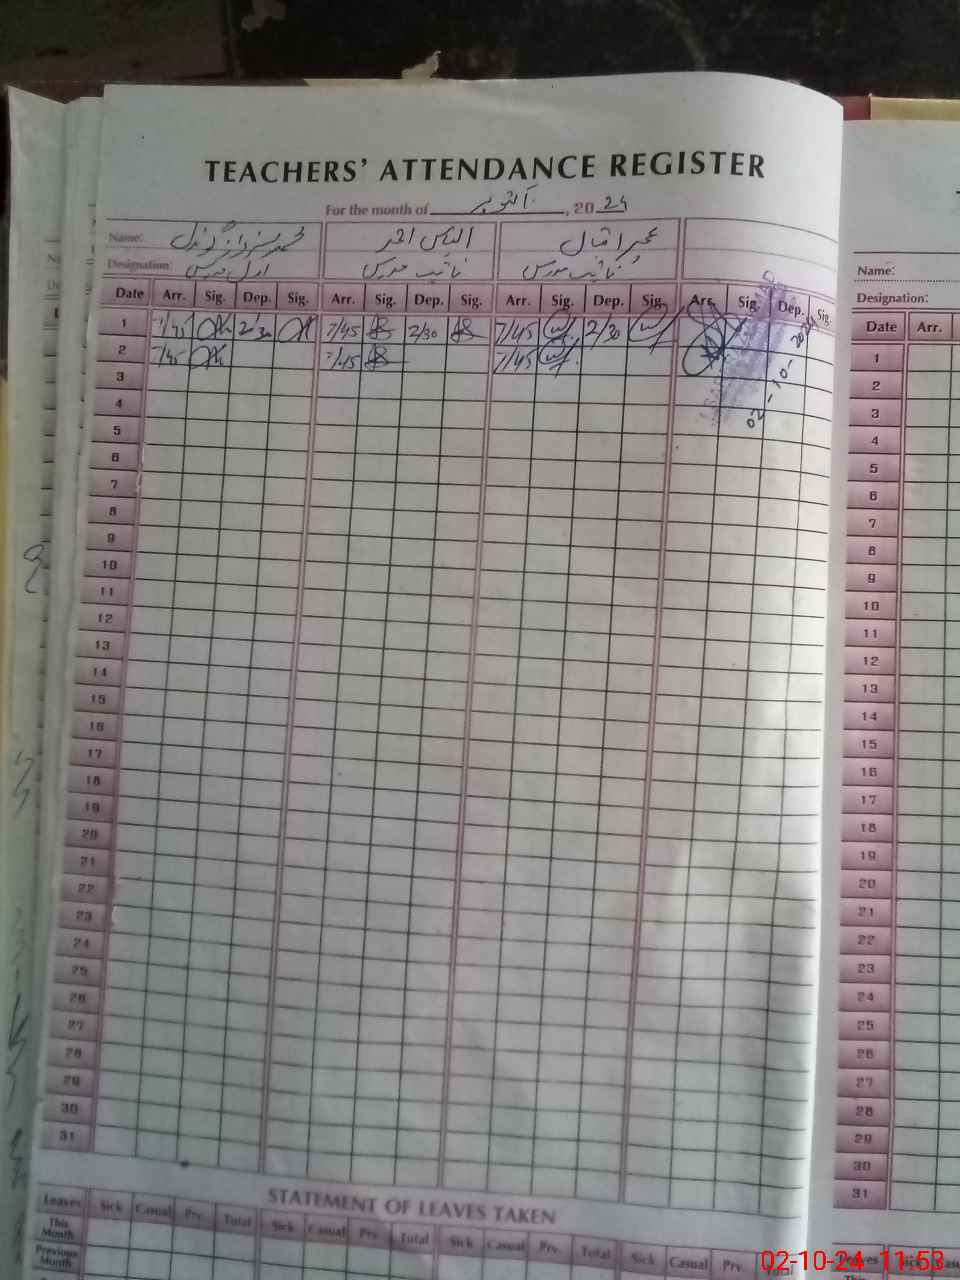 TEACHERS' ATTENDANCE REGISTER
For the month of اکتوبر, 2024
Name: الیاس احمد
Designation: اول مدرس نائب مدرس نائب مدرس
Date Arr. Sig. Dep. Sig. Arr. Sig. Dep. Sig. Arr. Sig. Dep. Sig. Arr. Sig. Dep. Sig.
1 7/45 2/30 7/45 2/30 7/45 2/30
2 7/45 7/45 7/45
02-10-2024
3
4
5
6
7
8
9
10
11
12
13
14
15
16
17
18
19
20
21
22
23
24
25
26
27
28
29
30
31
STATEMENT OF LEAVES TAKEN
Leaves Sick Casual Prv. Total Sick Casual Prv. Total Sick Casual Prv. Total Sick Casual Prv. Total
This Month
Previous Month
Name:
Designation:
Date Arr.
1
2
3
4
5
6
7
8
9
10
11
12
13
14
15
16
17
18
19
20
21
22
23
24
25
26
27
28
29
30
31
Leaves Sick
02-10-24 11:53